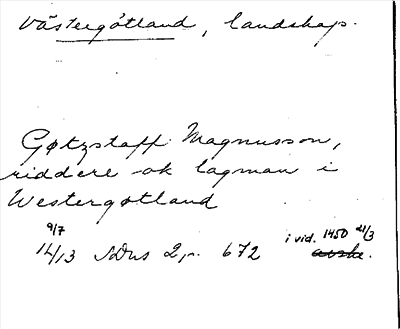 Västergötland, landskap.
Gøtzstaff Magnusson,
riddere ok lagman i
Westergøtland
9/7
14/13 SDns 2, n. 672 i vid. 1450 21/3
avskr.